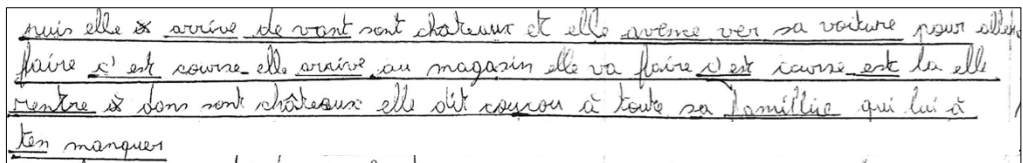 puis elle arrive de vant sont chateaux et elle avence ver sa voiture pour aller
faire c'est course elle arrive au magasin elle va faire c'est course est la elle
rentre dans sont châteaux elle dit coucou à toute sa famillie qui lui à
ten manquer